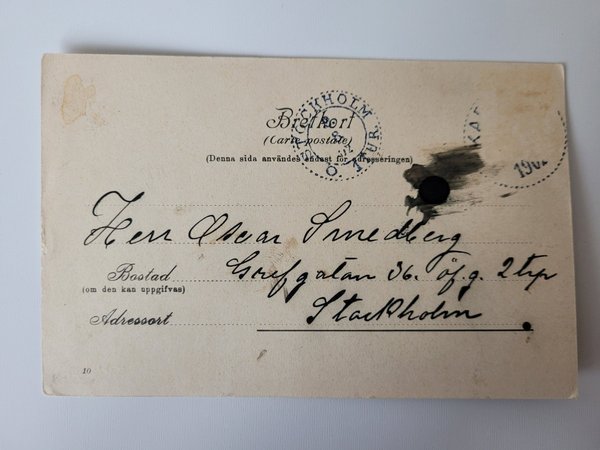 STOCKHOLM
Brefkort
(Carte postale)
(Denna sida användes endast för adresseringen)
Ö. 1 TUR.
KAR
190
Herr Oscar Smedberg
Bostad Grefgatan 36. öf. g. 2 trp
(om den kan uppgifvas)
Adressort Stockholm
10